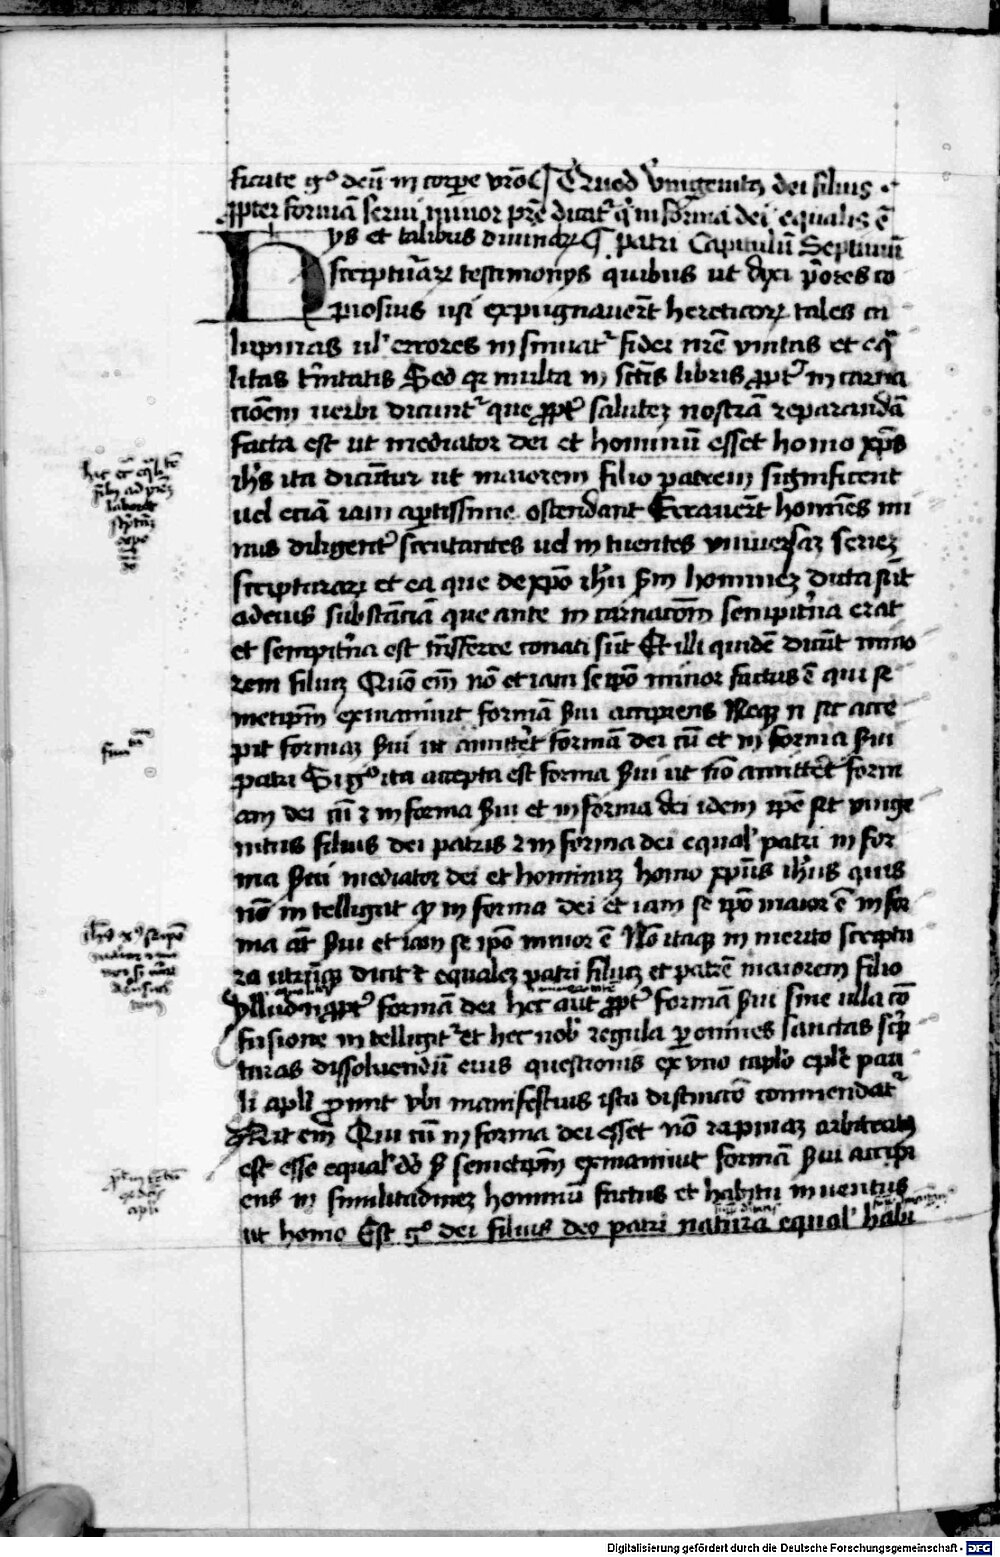 ficate g° deū in corpe vr̄o ¶ Quod vnigenitꝰ dei filius
ꝓpter formā serui minor pr̄e dicatʳ q̄ in forma dei equalis ē
Hys et talibus diuinaꝝ ¶ patri Capitulū Septimū
scripturaꝝ testimonys quibus ut dixi p̄ores co
piosius usi expugnauer̄t hereticoꝝ tales ca
lupnias ul' errores in sinuatʳ fidei nr̄e vnitas et eq̄
litas t̄nitatis Sed qꝛ multa in sc̄tis libris ꝓptʳ in carna
tiōem uerbi dicuntʳ que ꝓptʳ salutez nostrā reparandā
facta est ut mediator dei et hominū esset homo xp̄s
ih̄s ita dicūtur ut maiorem filio patrem significent
uel eciā iam aptissime ostendant Errauer̄t homīes mi
nus diligentʳ scrutantes uel in tuentes vniuersaz seriez
scripturaꝝ et ea que de xp̄o ih̄u s̄m hominez dicta sūt
ad eius substācīā que ante in carnacōm sempit̄na erat
et sempit̄na est trāsferre conati sūt Et illi quidē dicūt mino
rem filiuz Quō em̄ nō et iam se ip̄o minor factus ē qui se
metip̄m exinaniuit formā s̄ui accipiens Neqꝫ n̄ sic acce
pit formaz s̄ui ut amitt'et formā dei cū et in forma s̄ui
patri Si g° ita accepta est forma s̄ui ut nō amitt'et form
am dei cū ⁊ in forma s̄ui et in forma dei idem ip̄e sit vnige
nitus filius dei patris ⁊ in forma dei equal' patri in for
ma s̄ui mediator dei et hominuz homo xp̄us ih̄us quis
nō in telligat ꝙ in forma dei et iam se ip̄o maior ē in for
ma aūt s̄ui et iam se ip̄o minor ē Nō itaqꝫ in merito scriptu
ra utrūqꝫ dicit ⁊ equalez patri filiuz et patrē maiorem filio
yllud n̄ ꝓptʳ formā dei hec aūt ꝓptʳ formā s̄ui sine ulla cō
fusione in telligitʳ et hec nob' regula ꝑ omnes sanctas sc̄p
turas dissoluendū eius questionis ex vno caplō ep̄le pau
li apl'i ꝓmit vbi manifestius ista distinctō commendatʳ
Ait em̄ Qui cū in forma dei esset nō rapinaz arbitratꝰ
est esse equal' dō s̄ semetip̄m exinaniuit formā s̄ui accipi
ens in similitudinez hominū factus et habitu inuentus
ut homo Est g° dei filius deo patri natura equal' habi